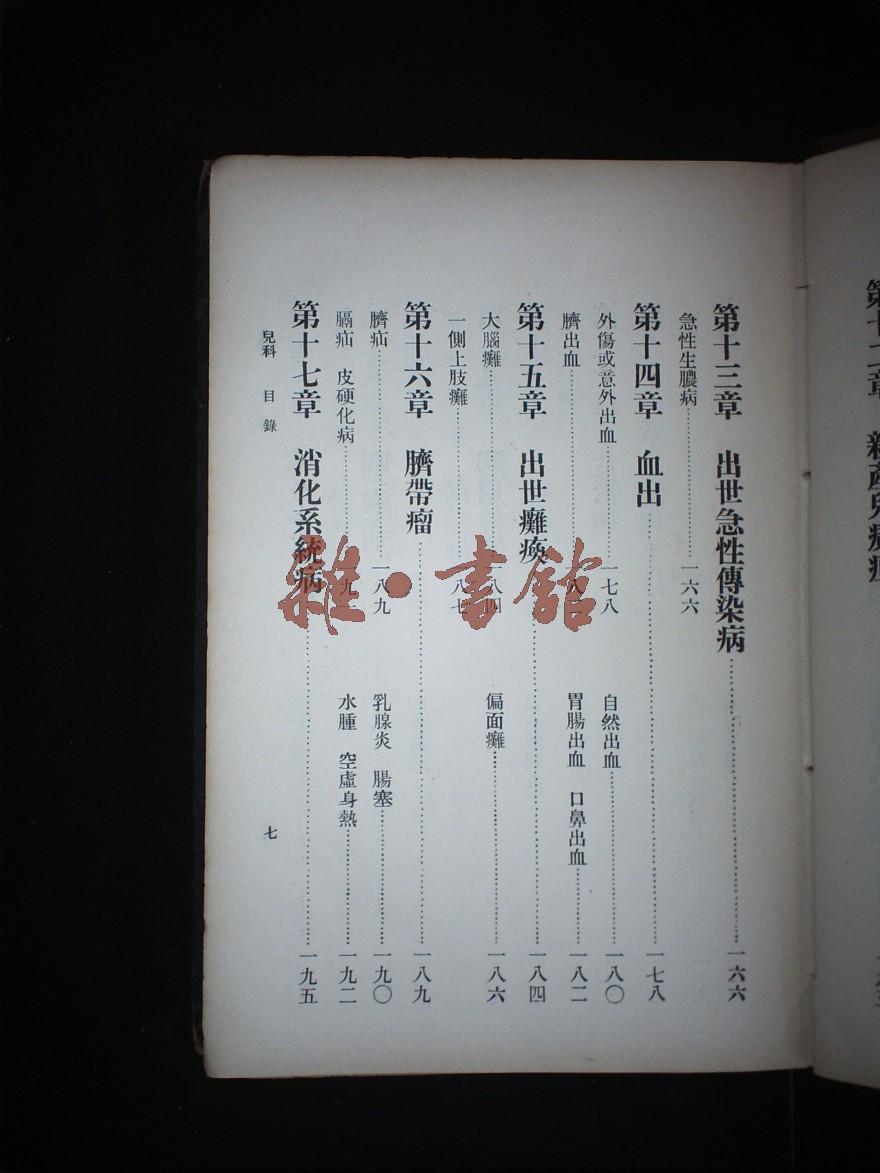 第十三章　出世急性傳染病……一六六
急性生膿病……一六六
第十四章　血出……一七八
外傷或意外出血……一七八　自然出血……一八〇
臍出血……一八二　胃腸出血　口鼻出血……一八二
第十五章　出世癱瘓……一八四
大腦癱……一八四　偏面癱……一八六
一側上肢癱……一八七
第十六章　臍帶瘤……一八九
臍疝……一八九　乳腺炎　腸塞……一九〇
膈疝　皮硬化病……一九　水腫　空虛身熱……一九二
第十七章　消化系統病……一九五
兒科　目錄　七
雜·書館